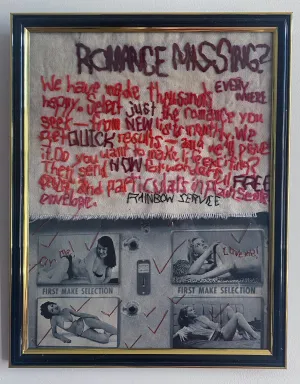 ROMANCE MISSING?
We have made thousands EVERYWHERE
happy. Select just the romance you
seek — from NEW lists monthly. We
get QUICK results — and we'll prove
it. Do you want to make life exciting?
Then send NOW for wonderful FREE
and particulars in plain sealed
envelope. RAINBOW SERVICE
Oh me!
I love me!
FIRST MAKE SELECTION
FIRST MAKE SELECTION
FIRST MAKE SELECTION
FIRST MAKE SELECTION